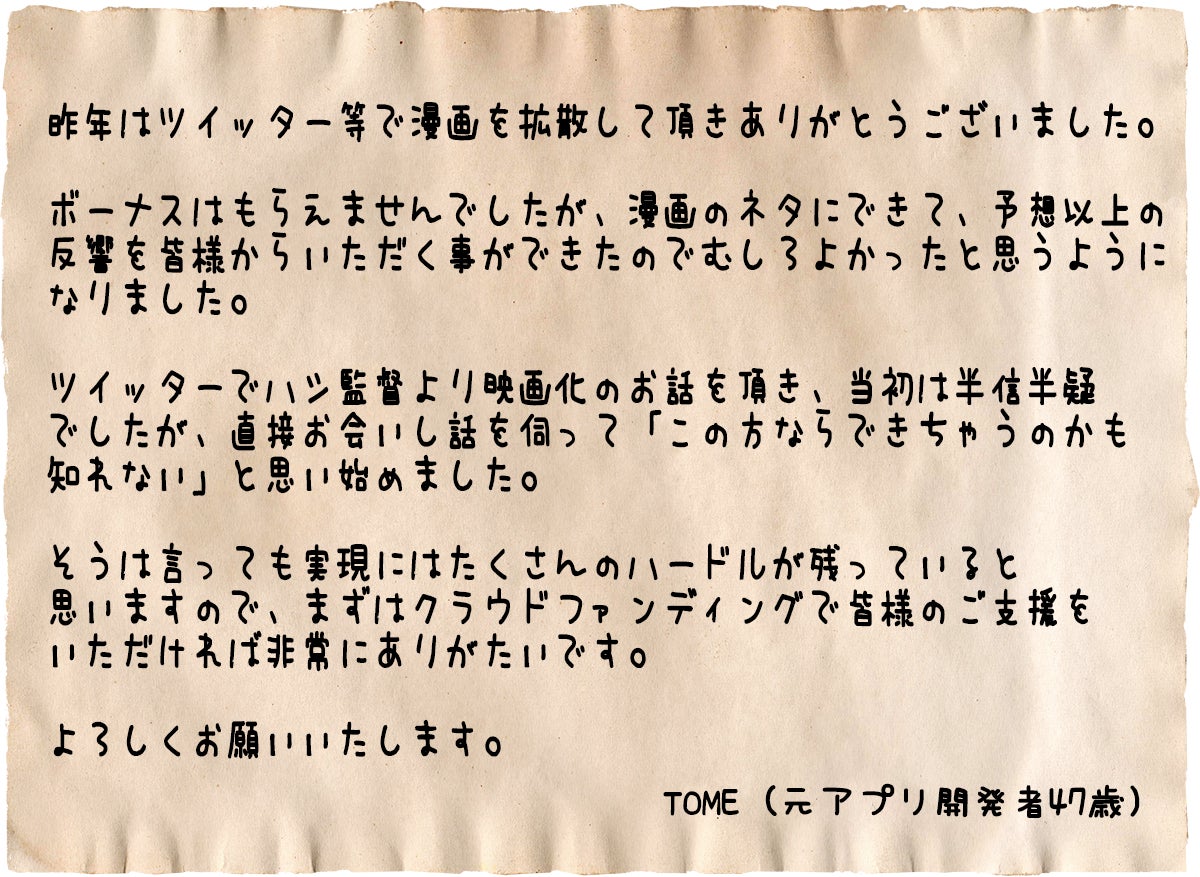 昨年はツイッター等で漫画を拡散して頂きありがとうございました。
ボーナスはもらえませんでしたが、漫画のネタにできて、予想以上の
反響を皆様からいただく事ができたのでむしろよかったと思うように
なりました。
ツイッターでハシ監督より映画化のお話を頂き、当初は半信半疑
でしたが、直接お会いし話を伺って「この方ならできちゃうのかも
知れない」と思い始めました。
そうは言っても実現にはたくさんのハードルが残っていると
思いますので、まずはクラウドファンディングで皆様のご支援を
いただければ非常にありがたいです。
よろしくお願いいたします。
TOME（元アプリ開発者47歳）